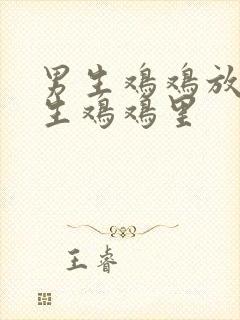 男生鸡鸡放
生鸡鸡里
王睿